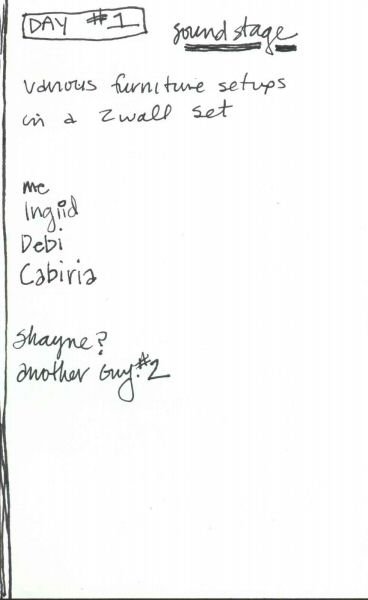 DAY #1
sound stage
various furniture setups
in a 2 wall set
me
Ingrid
Debi
Cabiria
Shayne?
another guy #2